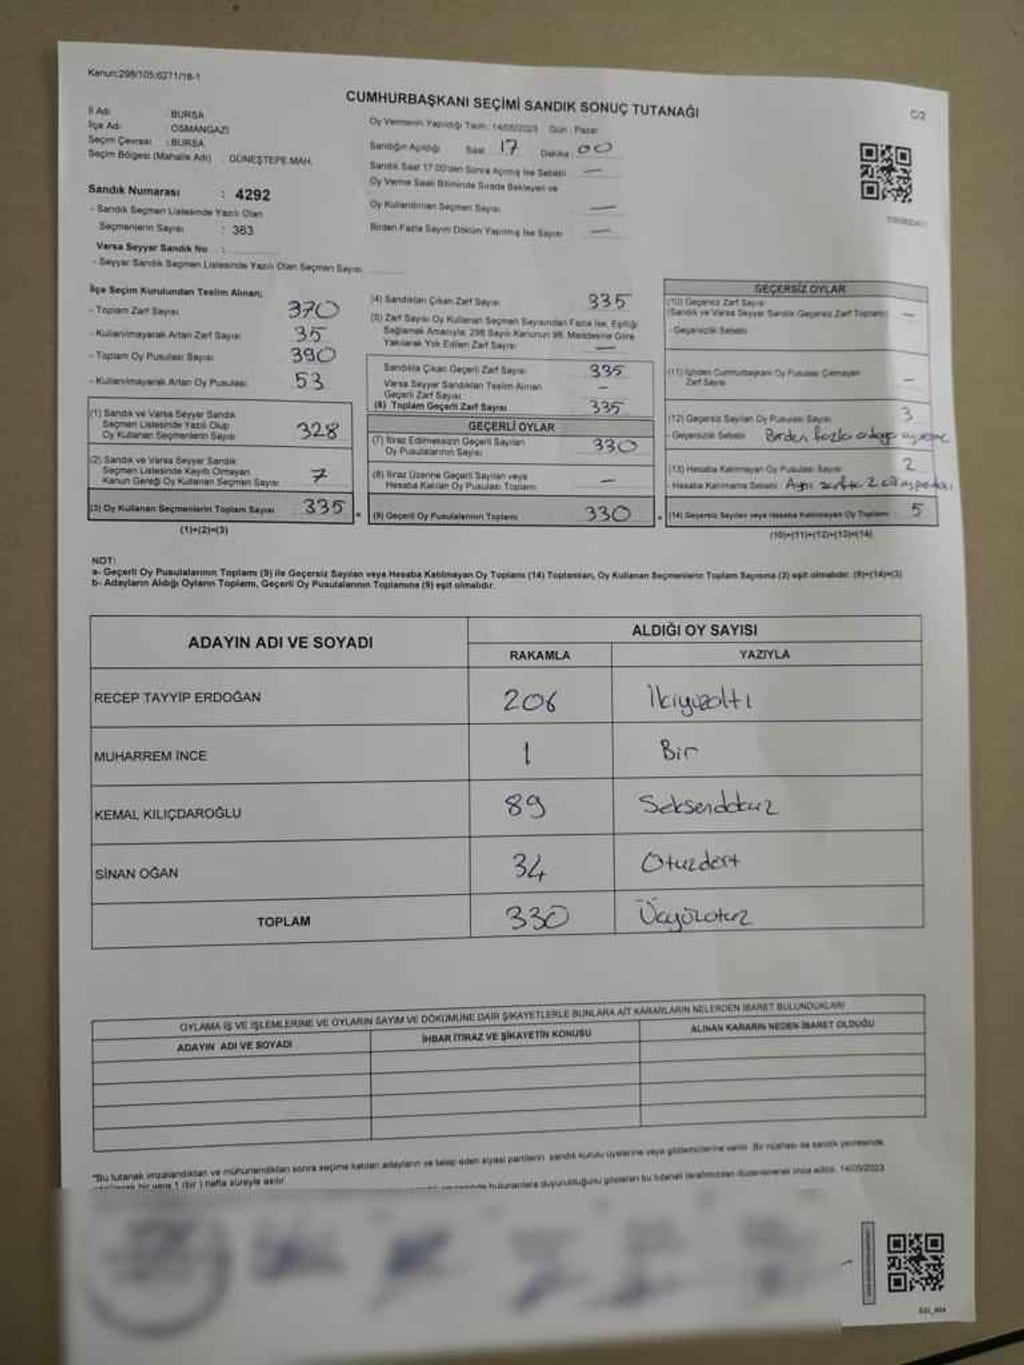 Kanun:298/105;6271/18-1
CUMHURBAŞKANI SEÇİMİ SANDIK SONUÇ TUTANAĞI
İl Adı BURSA
İlçe Adı OSMANGAZİ
Seçim Çevresi : BURSA
Seçim Bölgesi (Mahalle Adı) GÜNEŞTEPE MAH.
Sandık Numarası : 4292
- Sandık Seçmen Listesinde Yazılı Olan
Seçmenlerin Sayısı : 363
Varsa Seyyar Sandık No :
- Seyyar Sandık Seçmen Listesinde Yazılı Olan Seçmen Sayısı
Oy Vermenin Yapıldığı Tarih : 14/05/2023 Gün : Pazar
Sandığın Açıldığı Saat 17 Dakika : 00
Sandık Saat 17.00'den Sonra Açılmış İse Sebebi —
Oy Verme Saati Bitiminde Sırada Bekleyen ve
Oy Kullandırılan Seçmen Sayısı —
Birden Fazla Sayım Döküm Yapılmış İse Sayısı —
İlçe Seçim Kurulundan Teslim Alınan;
- Toplam Zarf Sayısı 370
- Kullanılmayarak Artan Zarf Sayısı 35
- Toplam Oy Pusulası Sayısı 390
- Kullanılmayarak Artan Oy Pusulası 53
(1) Sandık ve Varsa Seyyar Sandık
Seçmen Listesinde Yazılı Olup
Oy Kullanan Seçmenlerin Sayısı 328
(2) Sandık ve Varsa Seyyar Sandık
Seçmen Listesinde Kayıtlı Olmayan
Kanun Gereği Oy Kullanan Seçmen Sayısı 7
(3) Oy Kullanan Seçmenlerin Toplam Sayısı 335
(1)+(2)=(3)
(4) Sandıktan Çıkan Zarf Sayısı 335
(5) Zarf Sayısı Oy Kullanan Seçmen Sayısından Fazla İse, Eşitliği
Sağlamak Amacıyla, 298 Sayılı Kanunun 98. Maddesine Göre
Yakılarak Yok Edilen Zarf Sayısı —
Sandıkta Çıkan Geçerli Zarf Sayısı 335
Varsa Seyyar Sandıktan Teslim Alınan
Geçerli Zarf Sayısı —
(6) Toplam Geçerli Zarf Sayısı 335
GEÇERLİ OYLAR
(7) İtiraz Edilmeksizin Geçerli Sayılan
Oy Pusulalarının Sayısı 330
(8) İtiraz Üzerine Geçerli Sayılan veya
Hesaba Katılan Oy Pusulası Toplamı —
(9) Geçerli Oy Pusulalarının Toplamı 330
GEÇERSİZ OYLAR
(10) Geçersiz Zarf Sayısı
(Sandık ve Varsa Seyyar Sandık Geçersiz Zarf Toplamı) —
- Geçersizlik Sebebi
(11) İçinden Cumhurbaşkanı Oy Pusulası Çıkmayan
Zarf Sayısı —
(12) Geçersiz Sayılan Oy Pusulası Sayısı 3
- Geçersizlik Sebebi Birden fazla adaya
(13) Hesaba Katılmayan Oy Pusulası Sayısı 2
- Hesaba Katılmama Sebebi : Aynı zarfta 2
(14) Geçersiz Sayılan veya Hesaba Katılmayan Oy Toplamı 5
(10)+(11)+(12)+(13)=(14)
NOT:
a- Geçerli Oy Pusulalarının Toplamı (9) ile Geçersiz Sayılan veya Hesaba Katılmayan Oy Toplamı (14) Toplamları, Oy Kullanan Seçmenlerin Toplam Sayısına (3) eşit olmalıdır. (9)+(14)=(3)
b- Adayların Aldığı Oyların Toplamı, Geçerli Oy Pusulalarının Toplamına (9) eşit olmalıdır.
ADAYIN ADI VE SOYADI ALDIĞI OY SAYISI
RAKAMLA YAZIYLA
RECEP TAYYİP ERDOĞAN 206 İkiyüzaltı
MUHARREM İNCE 1 Bir
KEMAL KILIÇDAROĞLU 89 Seksendokuz
SİNAN OĞAN 34 Otuzdört
TOPLAM 330 Üçyüzotuz
OYLAMA İŞ VE İŞLEMLERİNE VE OYLARIN SAYIM VE DÖKÜMÜNE DAİR ŞİKAYETLERLE BUNLARA AİT KARARLARIN NELERDEN İBARET BULUNDUKLARI
ADAYIN ADI VE SOYADI İHBAR İTİRAZ VE ŞİKAYETİN KONUSU ALINAN KARARIN NEDEN İBARET OLDUĞU
"Bu tutanak imzalandıktan ve mühürlendikten sonra seçime katılan adayların ve talep eden siyasi partilerin sandık kurulu üyelerine veya gözlemcilerine verilir. Bir nüshası da sandık çevresinde
bir yere 1 (bir) hafta süreyle asılır. bulunanlara duyurulduğunu gösteren bu tutanak tarafımızdan düzenlenerek imza edildi. 14/05/2023